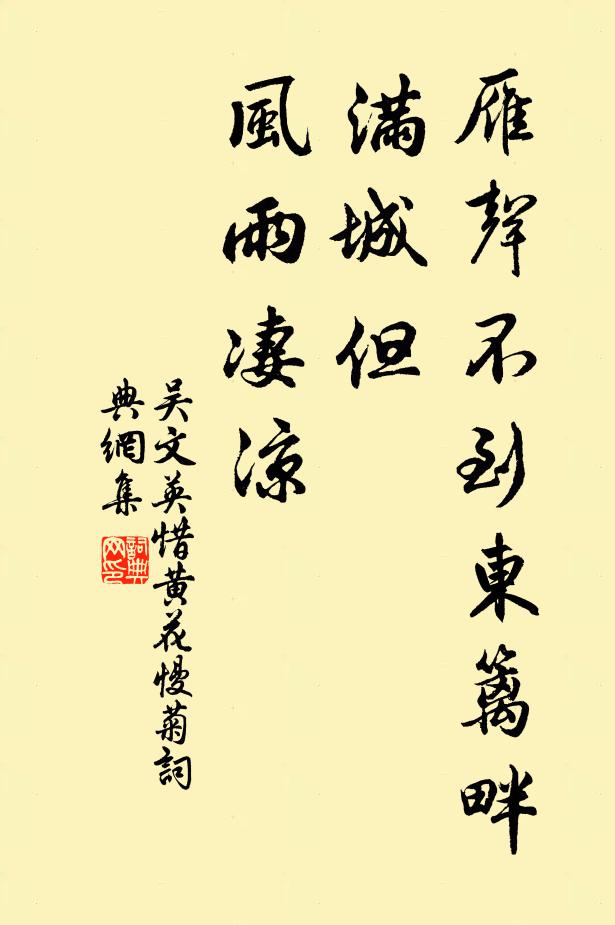 雁聲不到東籬畔
滿城但
風雨凄涼
吴文英惜黄花慢菊詞
典網集
詞典
网印